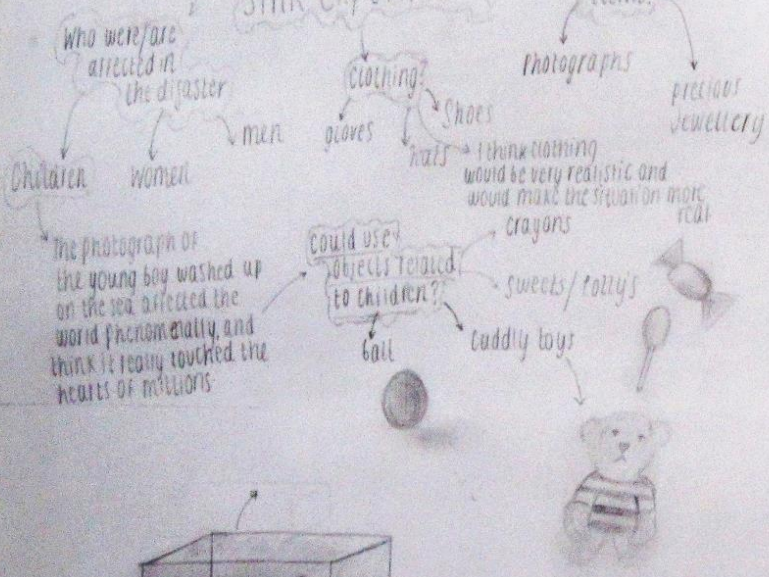 Who were/are
affected in
the disaster
men
women
Children
The photograph of
the young boy washed up
on the sea affected the
world phenomenally, and
think it really touched the
hearts of millions
clothing?
gloves
hats
Shoes
I think clothing
would be very realistic and
would make the situation more
real
Photographs
precious
Jewellery
could use
objects related
to children?
crayons
sweets/lolly's
cuddly toys
ball